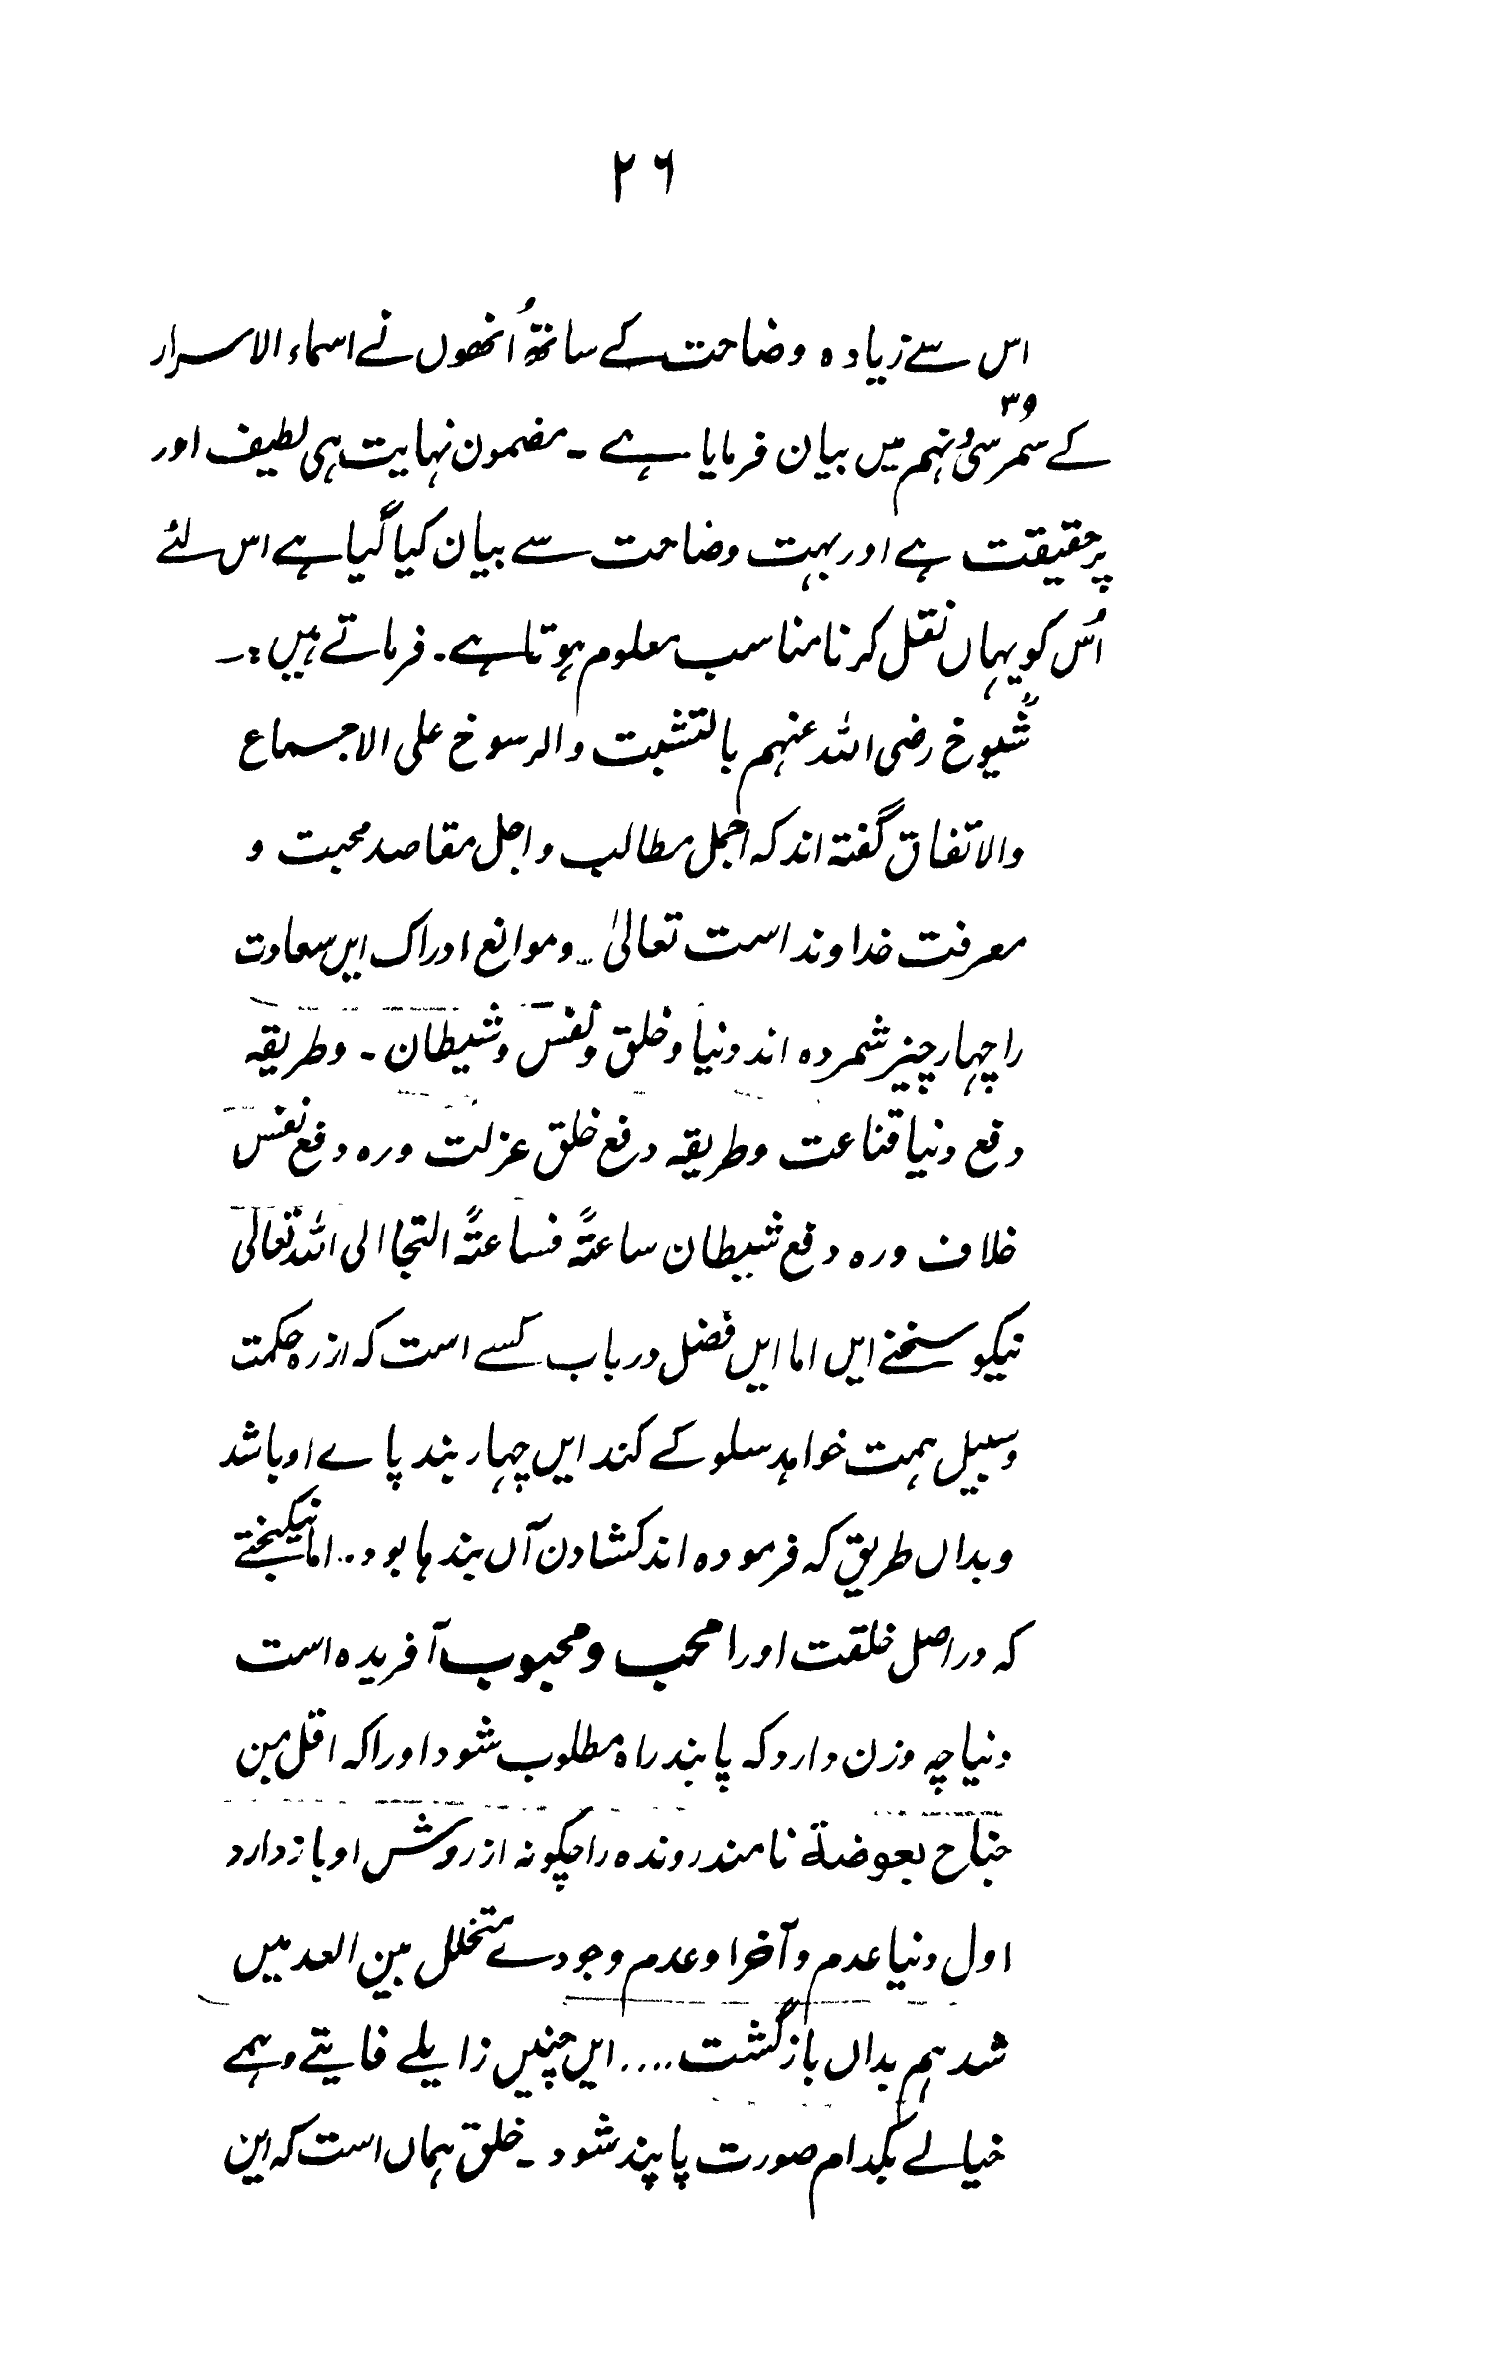 ۲۶
اس سے زیادہ وضاحت کے ساتھ اُنھوں نے اسماء الاسرار
کے سمر سی و نہم میں بیان فرمایا ہے ۔ مضمون نہایت ہی لطیف اور
پر حقیقت ہے اور بہت وضاحت سے بیان کیا گیا ہے اس لئے
اُس کو یہاں نقل کرنا مناسب معلوم ہوتا ہے ۔ فرماتے ہیں :۔
"شیوخ رضی اللہ عنہم بالتشبت والرسوخ علی الاجماع
والاتفاق گفتہ اند کہ اجمل مطالب و اجل مقاصد محبت و
معرفت خداوند است تعالیٰ ۔ و موانع ادراک ایں سعادت
را چہار چیز شمردہ اند دنیا و خلق و نفس و شیطان ۔ و طریقہ
دفع دنیا قناعت و طریقہ دفع خلق عزلت و رہ دفع نفس
خلاف و رہ دفع شیطان ساعتہً فساعتہً التجا الی اللہ تعالی
نیکو سخنے ایں اما ایں فضل در باب کسے است کہ از رہ حکمت
و سبیل ہمت خواہد سلوکے کند ایں چہار بند پاے او باشد
و بداں طریق کہ فرمودہ اند کشادن آں بندہا بود .. اما نیکبختے
کہ در اصل خلقت اورا محب و محبوب آفریدہ است
دنیا چہ وزن دارد کہ پابند راہ مطلوب شود اورا کہ اقل من
جناح بعوضۃ نامند روندہ را چگونہ از روش او باز دارد
اول دنیا عدم و آخرا و عدم وجودے متخلل بین العدمیں
شد ہم بداں بازگشت .... ایں چنیں زایلے فایتے وہمے
خیالے بکدام صورت پابند شود ۔ خلق ہماں است کہ این